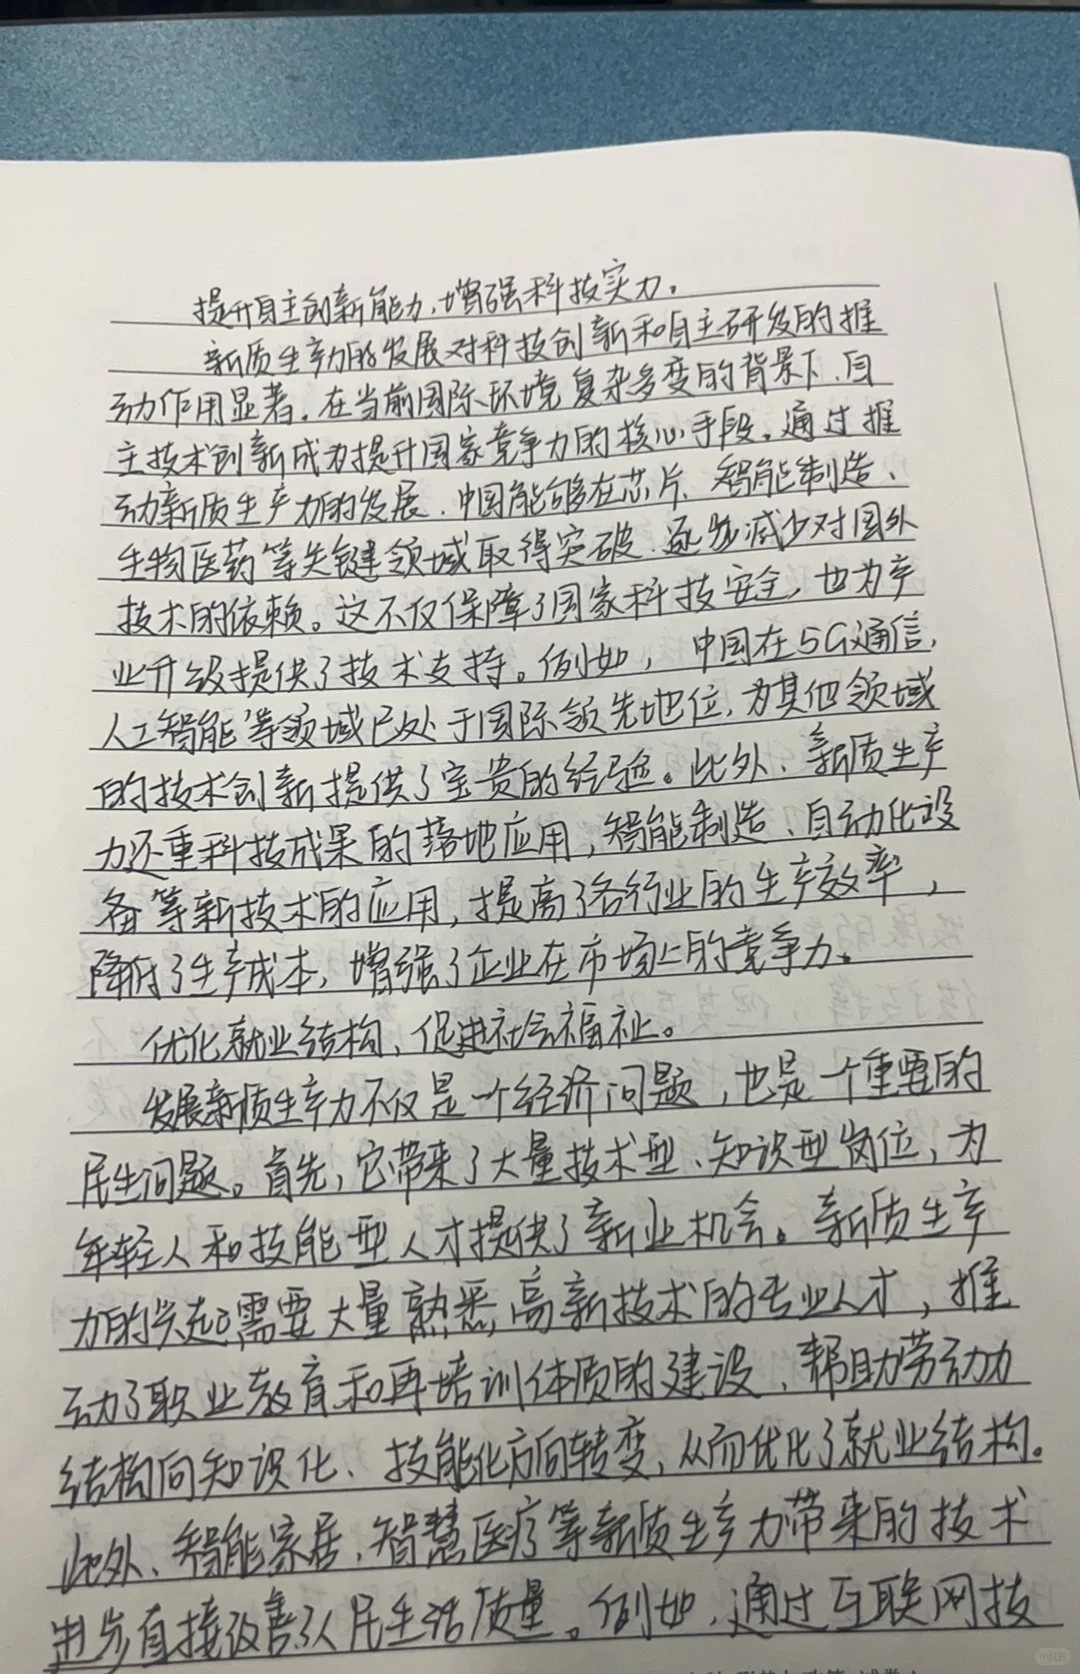 提升自主创新能力,增强科技实力。
新质生产力的发展对科技创新和自主研发的推
动作用显著。在当前国际环境复杂多变的背景下,自
主技术创新成为提升国家竞争力的核心手段。通过推
动新质生产力的发展,中国能够在芯片、智能制造、
生物医药等关键领域取得突破,逐步减少对国外
技术的依赖。这不仅保障了国家科技安全,也为产
业升级提供了技术支持。例如,中国在5G通信,
人工智能等领域已处于国际领先地位,为其他领域
的技术创新提供了宝贵的经验。此外、新质生产
力还重科技成果的落地应用,智能制造、自动化设
备等新技术的应用,提高了各行业的生产效率,
降低了生产成本,增强了企业在市场上的竞争力。
优化就业结构,促进社会福祉。
发展新质生产力不仅是一个经济问题,也是一个重要的
民生问题。首先,它带来了大量技术型、知识型岗位,为
年轻人和技能型人才提供了新业机会。新质生产
力的兴起需要大量熟悉高新技术的专业人才,推
动了职业教育和再培训体质的建设、帮助劳动力
结构向知识化、技能化方向转变,从而优化了就业结构。
此外、智能家居,智慧医疗等新质生产力带来的技术
进步直接改善了人民生活质量。例如,通过互联网技